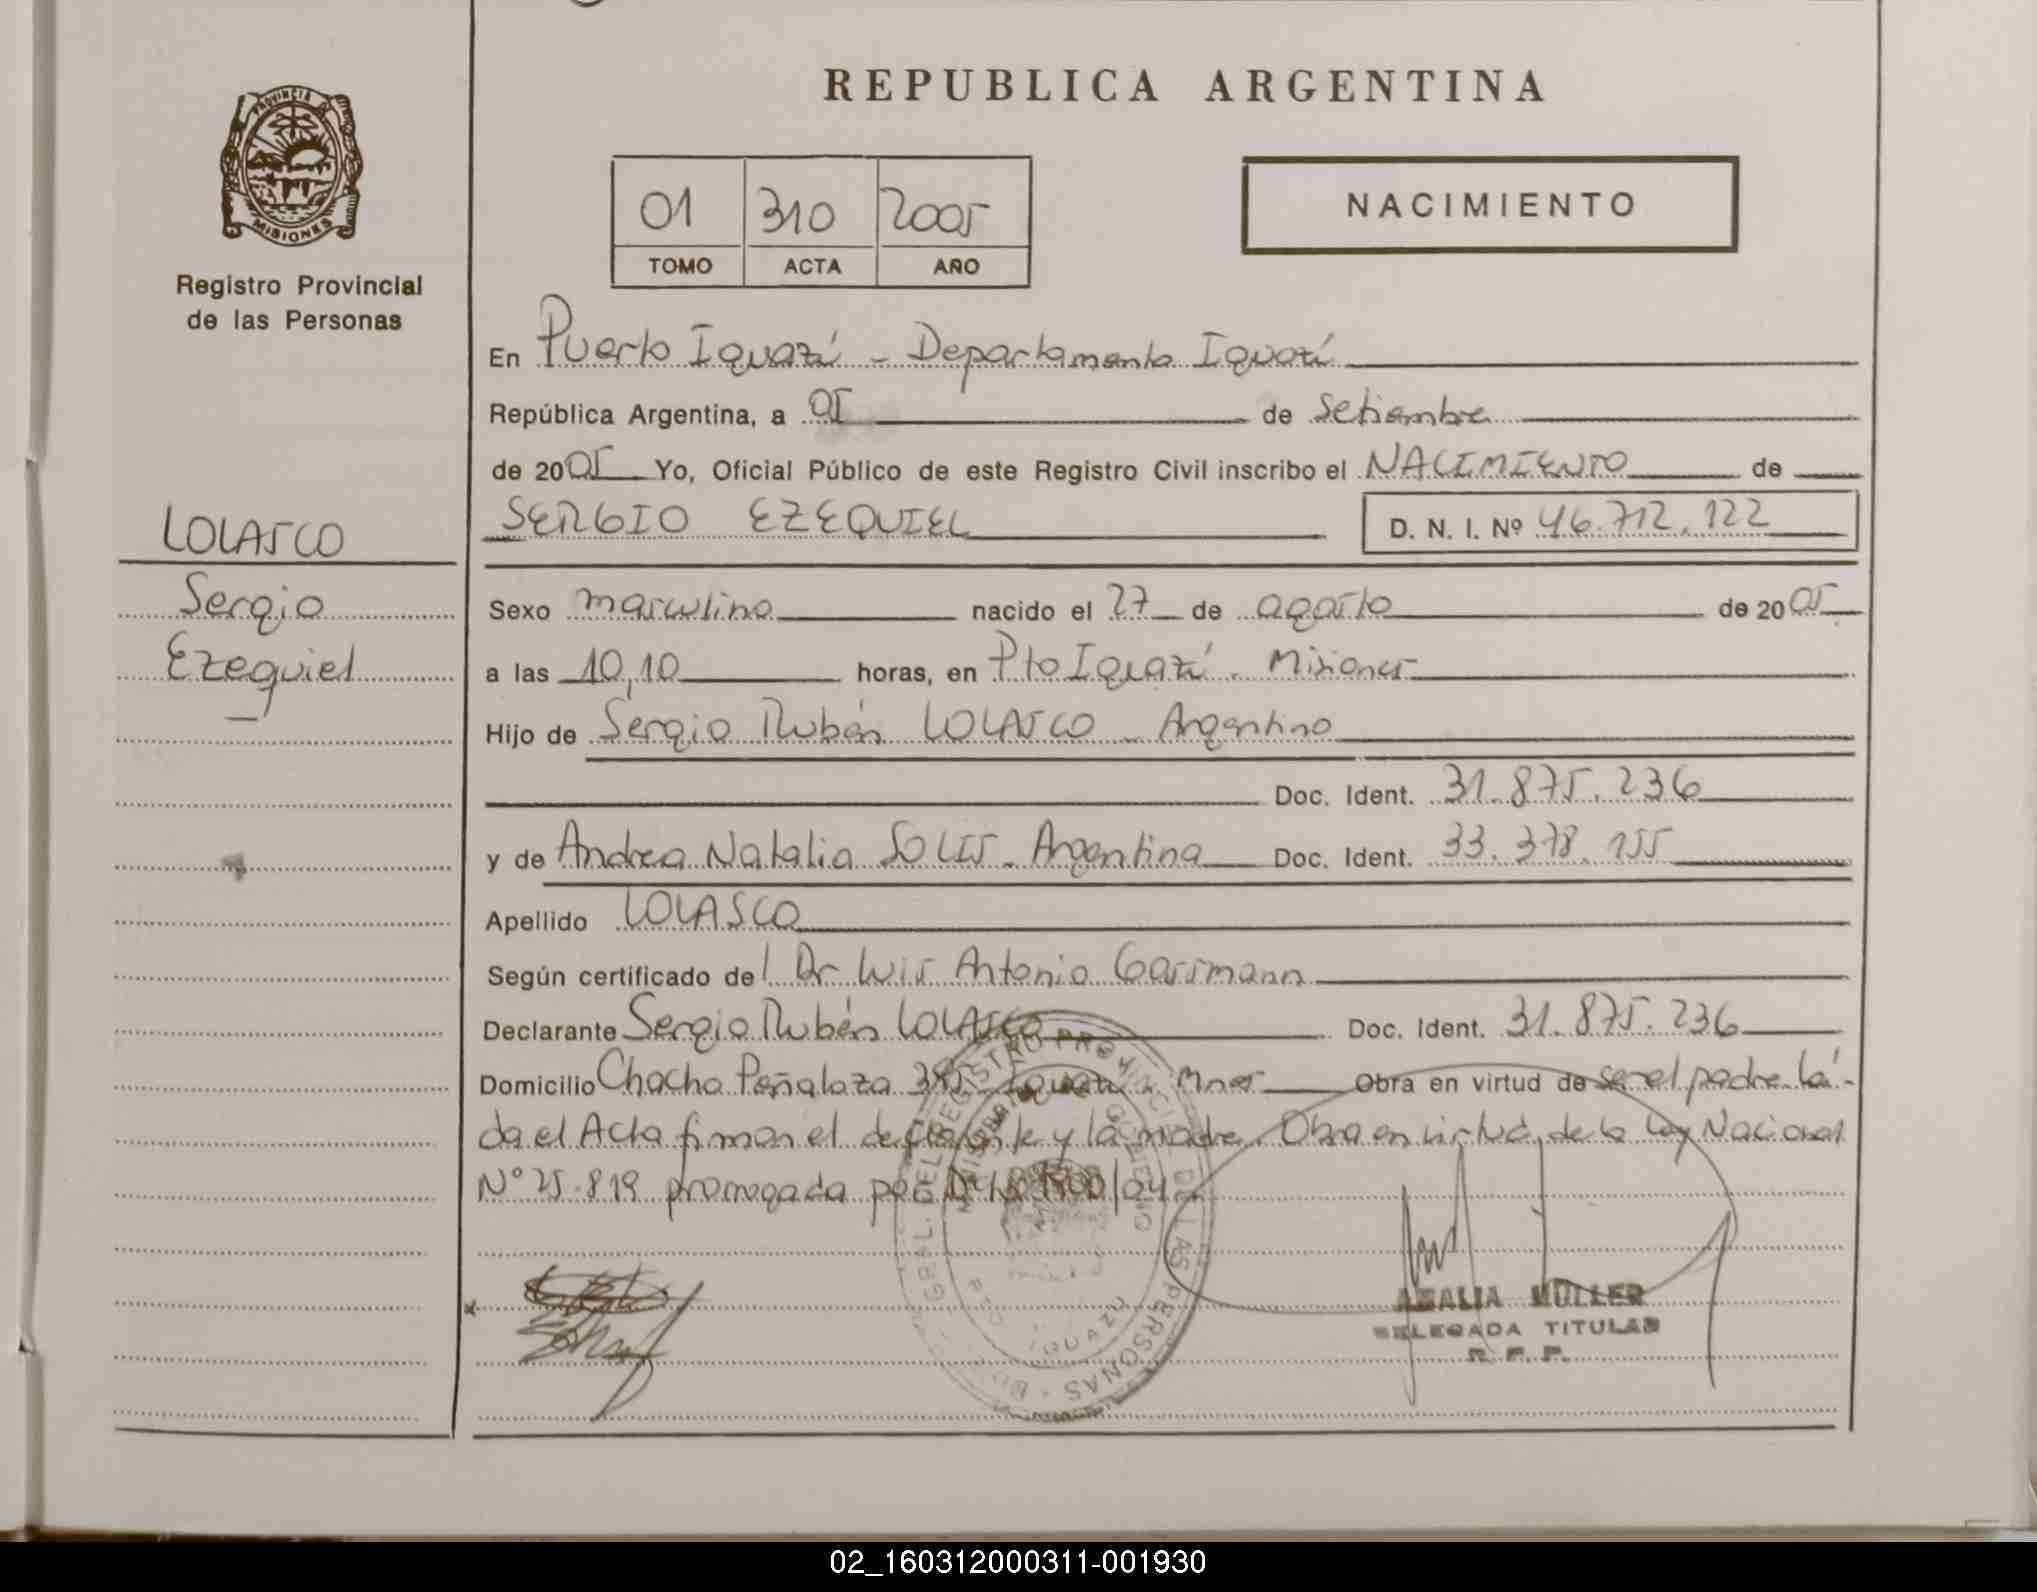 REPUBLICA ARGENTINA
PROVINCIA D
MISIONES
Registro Provincial
de las Personas
01 310 2005
TOMO ACTA AÑO
NACIMIENTO
En Puerto Iguazú - Departamento Iguazú
República Argentina, a 05 de Setiembre
de 2005 Yo, Oficial Público de este Registro Civil inscribo el NACIMIENTO de
SERGIO EZEQUIEL D. N. I. Nº 46.712.122
LOLASCO
Sergio
Ezequiel
Sexo masculino nacido el 27 de agosto de 2005
a las 10,10 horas, en Pto Iguazú - Misiones
Hijo de Sergio Rubén LOLASCO - Argentino
Doc. Ident. 31.875.236
y de Andrea Natalia SOLIS - Argentina Doc. Ident. 33.378.155
Apellido LOLASCO
Según certificado del Dr Luis Antonio Gassmann
Declarante Sergio Rubén LOLASCO Doc. Ident. 31.875.236
Domicilio Chacho Peñaloza Iguazú - Mnes Obra en virtud de ser el padre. Leí-
da el Acta firman el declarante y la madre. Obra en virtud de la Ley Nacional
Nº 25.819 prorrogada por /04
REGISTRO PROVINCIAL DE LAS PERSONAS
MINISTERIO DE GOBIERNO
IGUAZU
AMALIA MULLER
DELEGADA TITULAR
R. P. P.
02_160312000311-001930